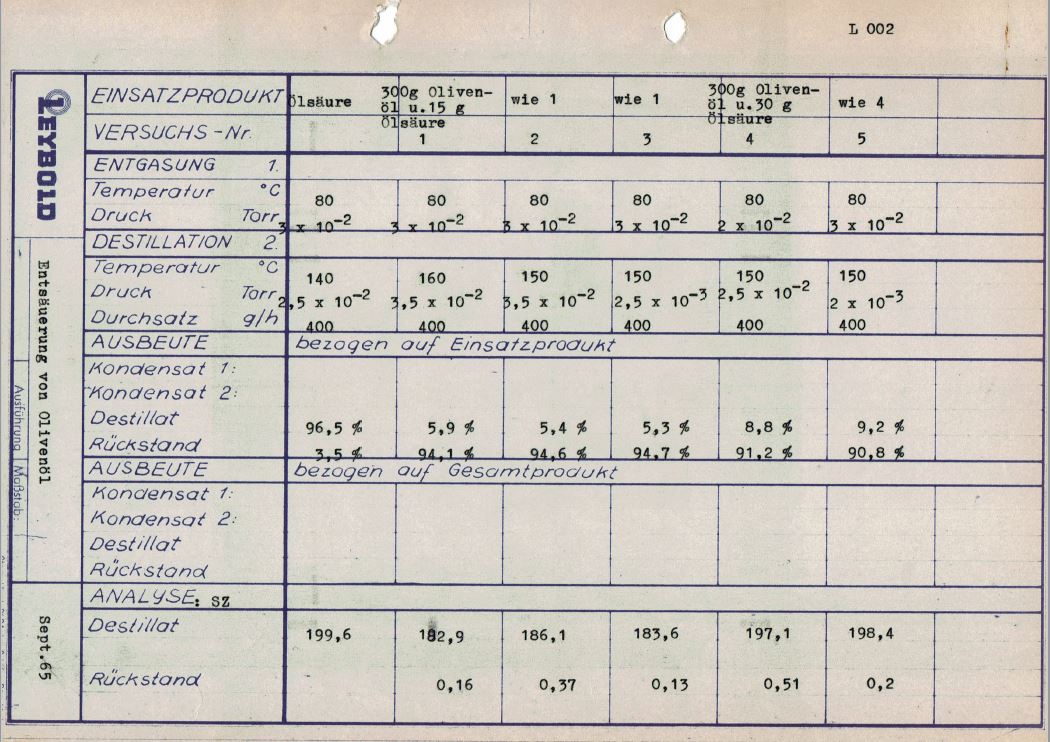 L 002
LEYBOLD
Entsäuerung von Olivenöl
Ausführung Maßstab:
Sept.65
EINSATZPRODUKT ölsäure 300g Oliven-öl u.15 g Ölsäure wie 1 wie 1 300g Oliven-öl u.30 g Ölsäure wie 4
VERSUCHS-Nr. 1 2 3 4 5
ENTGASUNG 1.
Temperatur °C 80 80 80 80 80 80
Druck Torr 3 x 10-2 3 x 10-2 3 x 10-2 3 x 10-2 2 x 10-2 3 x 10-2
DESTILLATION 2.
Temperatur °C 140 160 150 150 150 150
Druck Torr 2,5 x 10-2 3,5 x 10-2 3,5 x 10-2 2,5 x 10-3 2,5 x 10-2 2 x 10-3
Durchsatz g/h 400 400 400 400 400 400
AUSBEUTE bezogen auf Einsatzprodukt
Kondensat 1:
Kondensat 2:
Destillat 96,5 % 5,9 % 5,4 % 5,3 % 8,8 % 9,2 %
Rückstand 3,5 % 94,1 % 94,6 % 94,7 % 91,2 % 90,8 %
AUSBEUTE bezogen auf Gesamtprodukt
Kondensat 1:
Kondensat 2:
Destillat
Rückstand
ANALYSE: SZ
Destillat 199,6 182,9 186,1 183,6 197,1 198,4
Rückstand 0,16 0,37 0,13 0,51 0,2